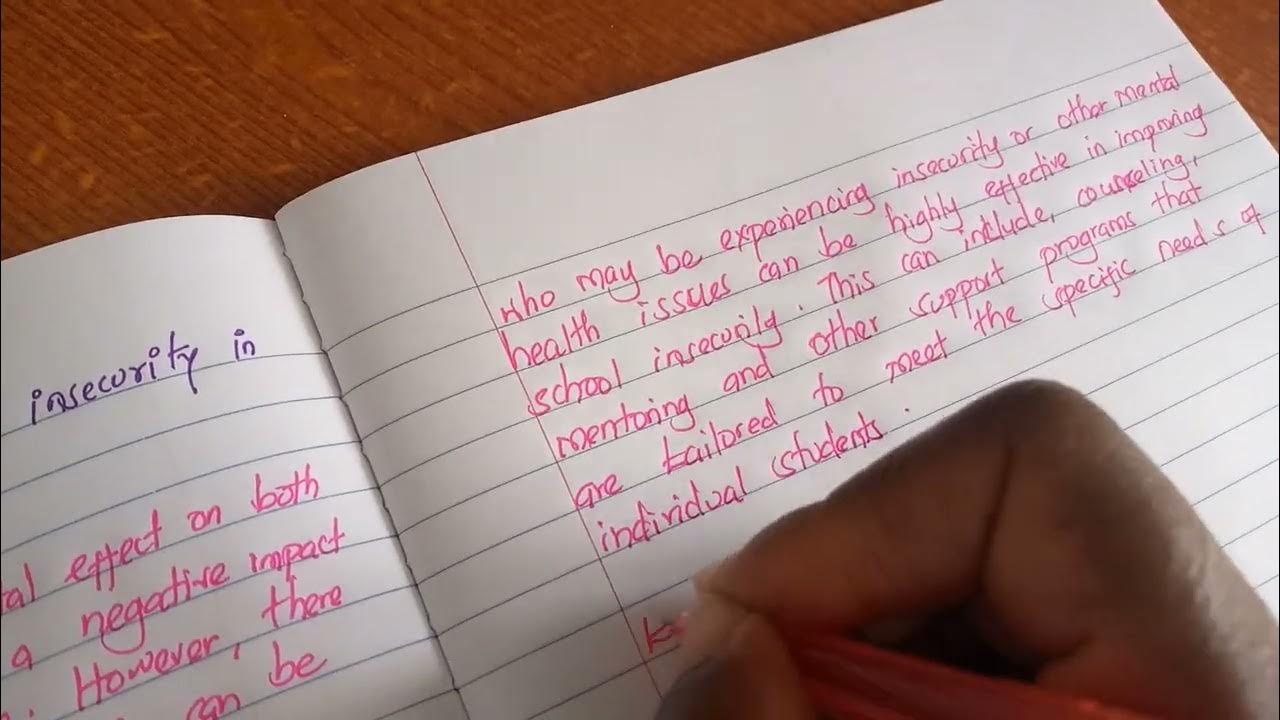 insecurity in
al effect on both
a negative impact
. However, there
can be
who may be experiencing insecurity or other mental
health issues can be highly effective in improving
school insecurity. This can include, counseling,
mentoring and other support programs that
are tailored to meet the specific needs of
individual students.